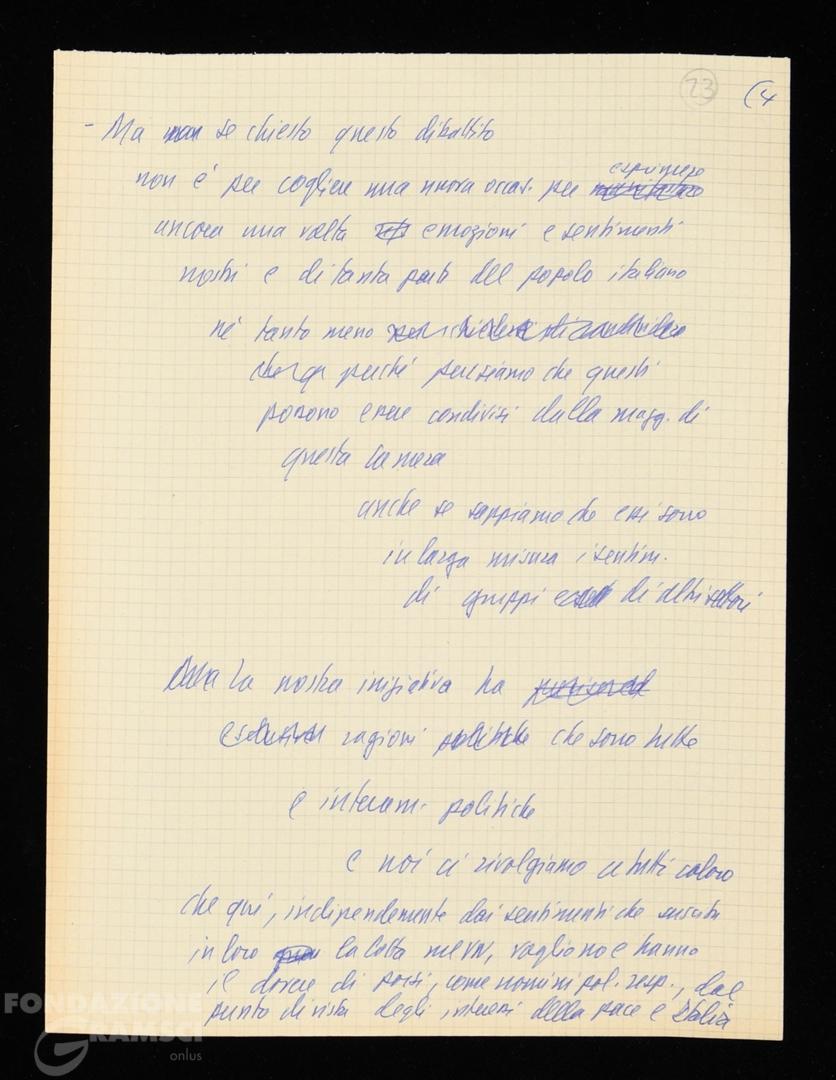 23 (4
- Ma se chiesto questo dibattito
non è per cogliere una nuova occas. per esprimere
ancora una volta emozioni e sentimenti
nostri e di tanta parte del popolo italiano
né tanto meno
perché pensiamo che questi
possono essere condivisi dalla magg. di
questa Camera
anche se sappiamo che essi sono
in larga misura i sentim.
di gruppi di altri settori
La nostra iniziativa ha
ragioni che sono tutte
e interam. politiche
e noi ci rivolgiamo a tutti coloro
che qui, indipendemente dai sentimenti che suscita
in loro la lotta nel VN, vogliono e hanno
il dovere di porsi, come uomini pol. resp., dal
punto di vista degli interessi della pace e Italia
FONDAZIONE
GRAMSCI
onlus